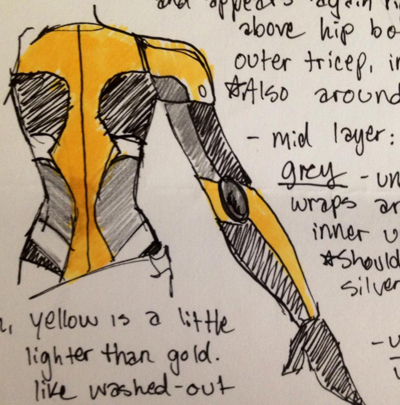 and appears again
above hip bo
outer tricep, in
☆Also around
- mid layer:
grey - un
wraps ar
inner u
☆Should
silver
yellow is a little
lighter than gold.
like washed-out